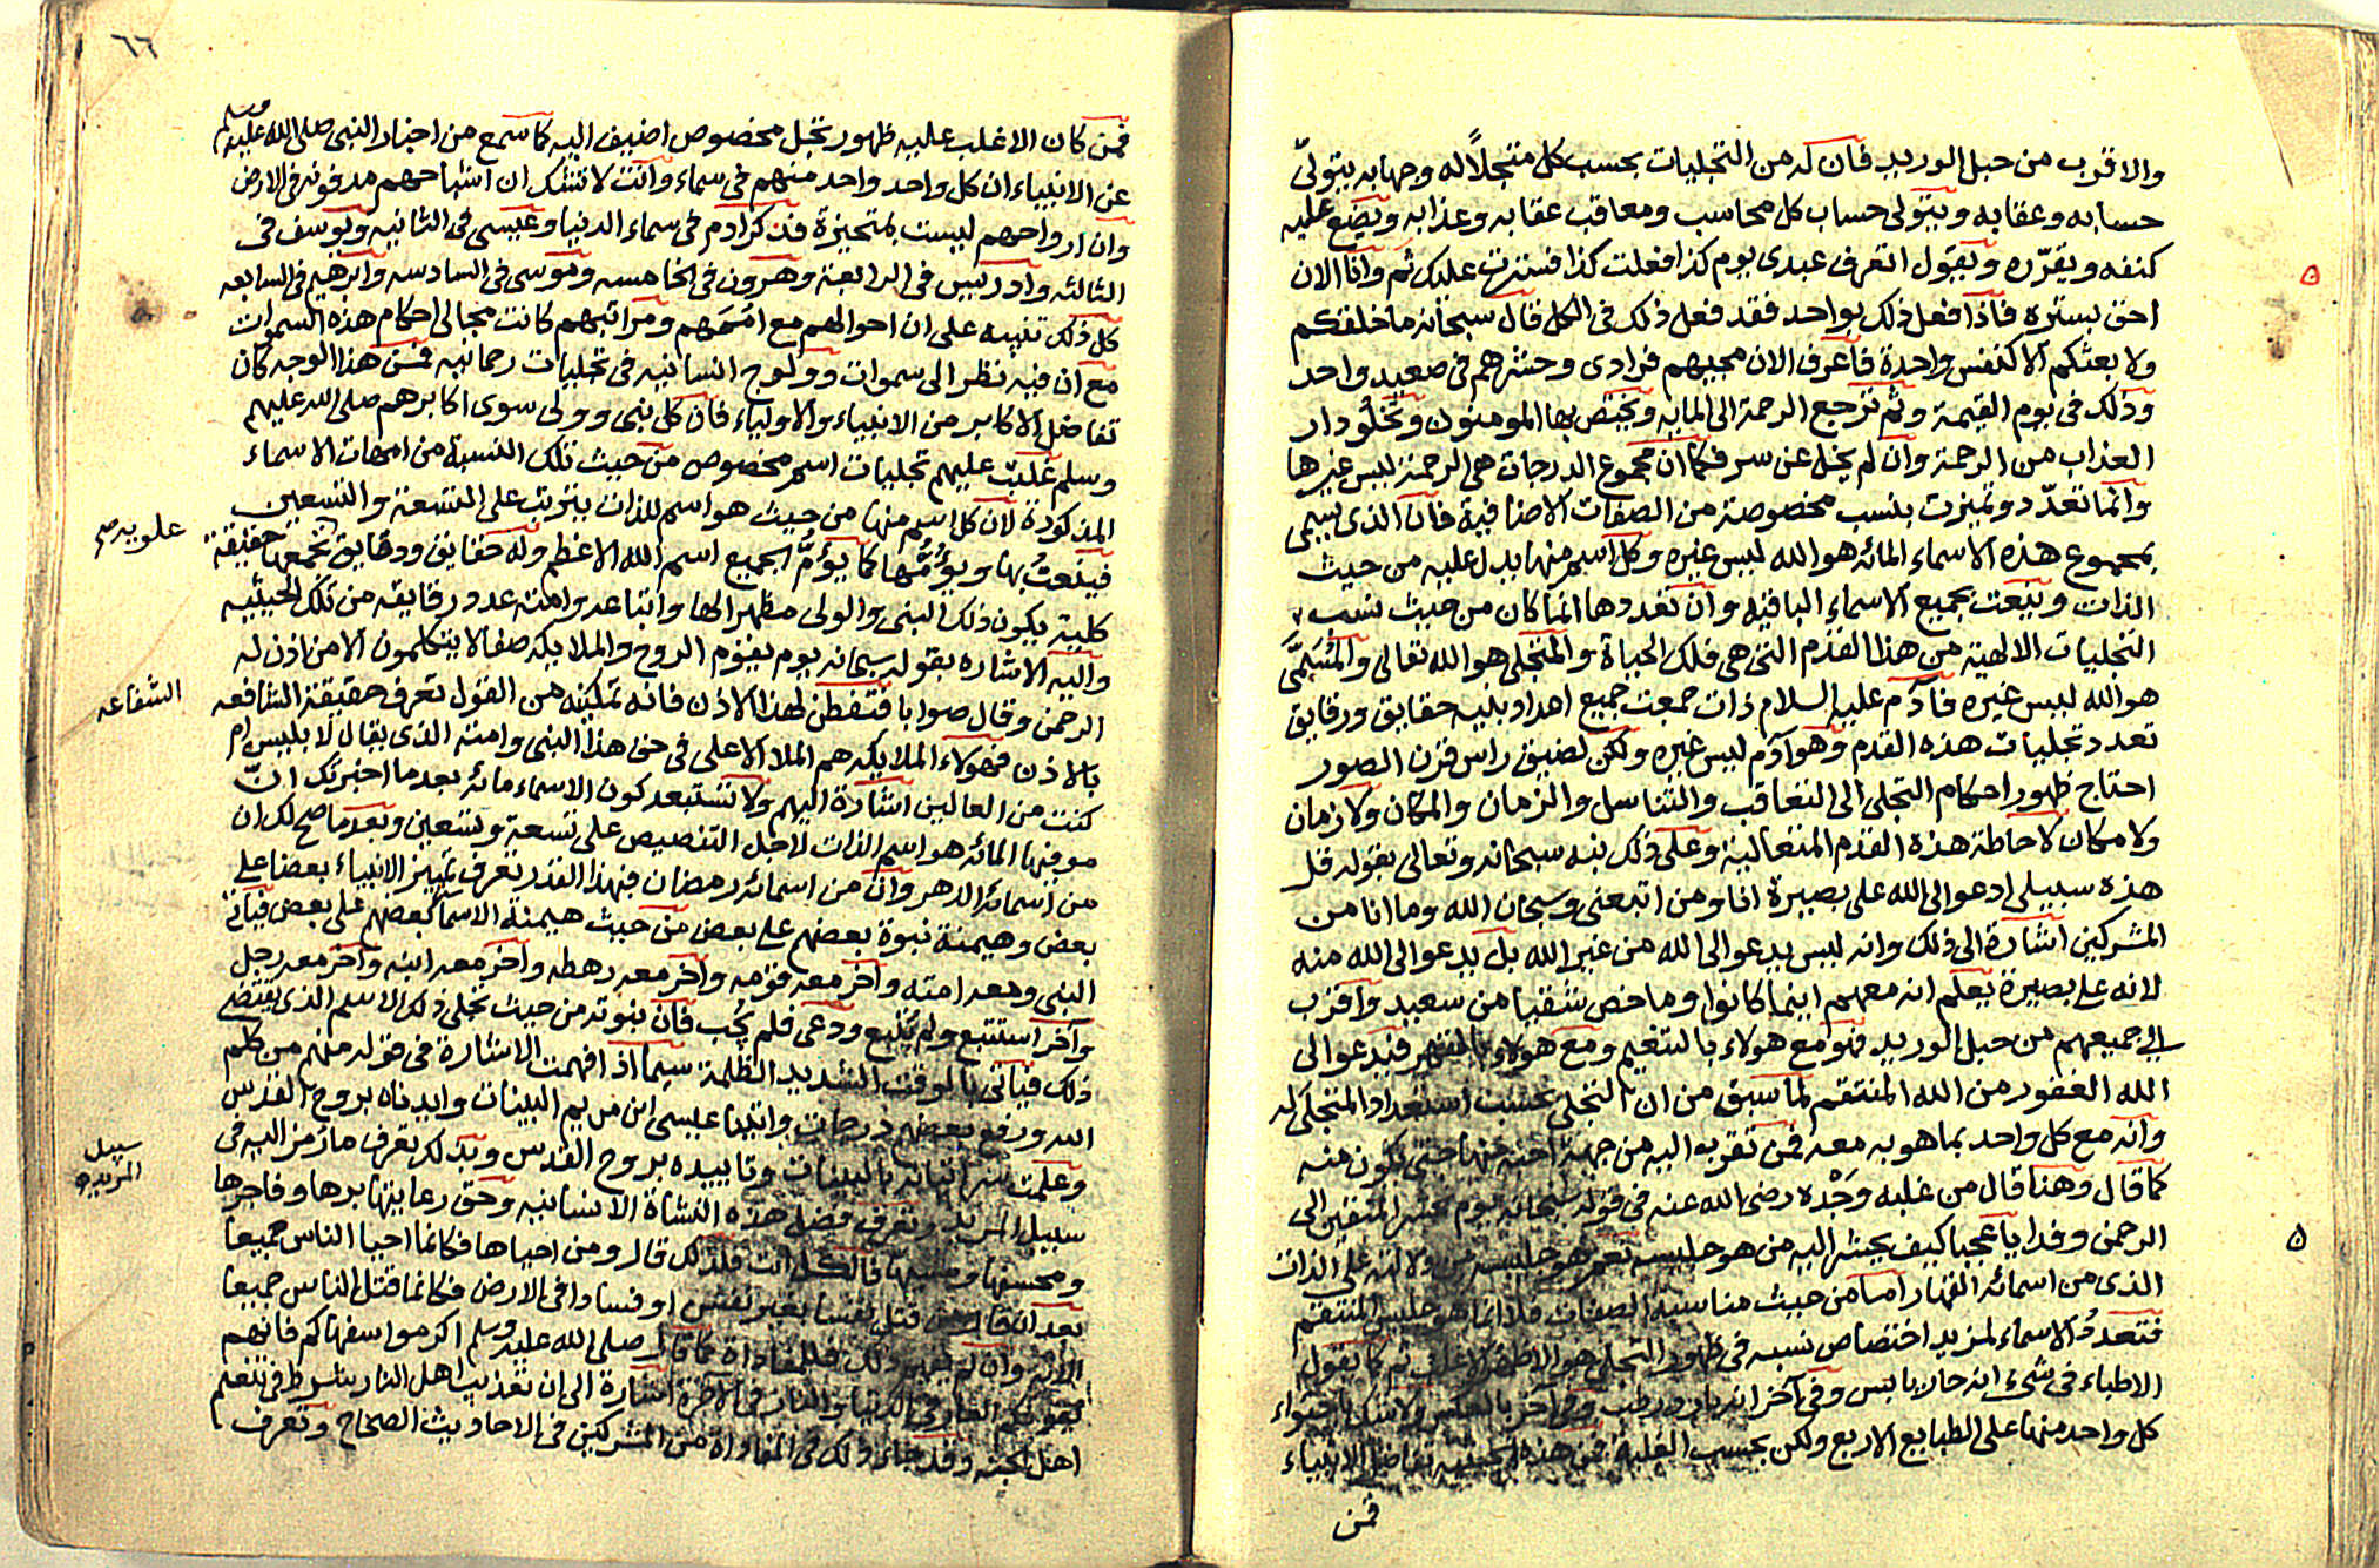 والاقرب من حبل الوريد فان له من التجليات بحسب كل متجلًا له وجها به يتولى
حسابه وعقابه ويتولى حساب كل محاسب ومعاقب عقابه وعذابه ويضع عليه
كنفه ويقرّره ويقول اتعرف عبدى يوم كذا فعلت كذا فسترت عليك ثم وانا الان
احق بستره فاذا فعل ذلك بواحد فقد فعل ذلك فى الكل قال سبحانه ما خلقكم
ولا بعثكم الا كنفس واحدة فاعرف الان مجيهم فرادى وحشرهم فى صعيد واحد
وذلك فى يوم القيمة وثم ترجع الرحمة الى المايه ويختص بها المومنون وتخلو دار
العذاب من الرحمة وان لم يخل عن سر فكما ان مجموع الدرجات هى الرحمة ليس غيرها
وانما تعدّد وتميزت بنسب مخصوصة من الصفات الاضافية فان الذى يسمى
بمجموع هذه الاسماء المائه هو الله ليس غيره وكل اسم منها يدل عليه من حيث
الذات وينعت بجميع الاسماء الباقيه وان تعددها انما كان من حيث نسب
التجليات الالهية من هذا القدم التى هى فلك الحياة والمتجلى هو الله تعالى والمُسَمَّى
هو الله ليس غيره فادم عليه السلام ذات جمعت جميع اهداو بنيه حقايق ورقايق
تعدد تجليات هذه القدم وهو آدم ليس غيره ولكن لضيق راس قرن الصور
احتاج ظهور احكام التجلى الى التعاقب والتناسل والزمان والمكان ولا زمان
ولا مكان لاحاطة هذه القدم المتعالية وعلى ذلك نبه سبحانه وتعالى بقوله قل
هذه سبيلى ادعو الى الله على بصيرة انا ومن اتبعنى وسبحان الله وما انا من
المشركين اشارة الى ذلك وانه ليس يدعو الى الله من غير الله بل يدعو الى الله منه
لانه على بصيرة يعلم انه معهم اينما كانوا وما خص شقيا من سعيد واقرب
الى جميعهم من حبل الوريد فهو مع هولاء بالتنعيم ومع هولاء بالقهر فيدعو الى
الله الغفور من الله المنتقم لما سبق من ان التجلى بحسب استعداد المتجلى له
وانه مع كل واحد بما هو به معه فمن تقرب اليه من جهة احبه منها حتى يكون منه
كما قال وهنا قال من غلبه وَجْده رضى الله عنه فى قوله سبحانه يوم نحشر المتقين الى
الرحمن وفدا يا عجبا كيف يحشر اليه من هو جليسه نعم هو جليسه من ولالته على الذات
الذى من اسمائه القهار اما من حيث مناسبة الصفات فلا انما هو جليس المنتقم
فتعدد الاسماء لمزيد اختصاص نسبه فى ظهور التجلى هو الاظهر الاغلب ثم كما يقول
الاطباء فى شىء انه حار يابس وفى آخر انه بارد رطب وفى آخر بالعكس ولا شك باحتواء
كل واحد منها على الطبايع الاربع ولكن بحسب الغلبة فمن هذه الحيثيه تفاضل الانبياء
فمن
٦٦
فمن كان الاغلب عليه ظهور تجل مخصوص اضيف اليه كما سمع من اخبار النبى صلى الله عليه وسلم
عن الانبياء ان كل واحد واحد منهم فى سماء وانت لا تشك ان اشباحهم مدفونه فى الارض
وان ارواحهم ليست بمتحيزة فذكر ادم فى سماء الدنيا وعيسى فى الثانيه ويوسف فى
الثالثه وادريس فى الرابعة وهرون فى الخامسه وموسى فى السادسه وابرهيم فى السابعه
كل ذلك تنبيه على ان احوالهم مع اممهم ومراتبهم كانت مجالى احكام هذه السموات
مع ان فيه نظر الى سموات وولوج انسانيه فى تجليات رحمانيه فمن هذا الوجه كان
تفاضل الاكابر من الانبياء والاولياء فان كل نبى وولى سوى اكابرهم صلى الله عليهم
وسلم غلبت عليهم تجليات اسم مخصوص من حيث تلك النسبة من امهات الاسماء
المذكورة لان كل اسم منها من حيث هو اسم للذات يترتب على التسعة والتسعين
فينعتُ بها ويؤمُّها كما يؤمُّ الجميع اسم الله الاعظم وله حقايق ودقايق تجمعها حقيقة
علويه صح
كلية يكون ذلك النبى والولى مظهرا لها واتباعه وامته عدد رقايقه من تلك الحيثيه
واليه الاشاره بقوله سبحانه يوم يقوم الروح والملايكه صفا لا يتكلمون الا من اذن له
الرحمن وقال صوابا فتفطن لهذا الاذن فانه تمكينه من القول تعرف حقيقة الشافعه
الشفاعه
بالاذن فهولاء الملايكه هم الملا الاعلى فى حق هذا النبى وامته الذى يقال لابليس ام
كنت من العالين اشارة اليهم ولا تستبعد كون الاسماء مائه بعد ما اخبرتك انّ
موفيها المائه هو اسم الذات لاجل التنصيص على تسعة وتسعين وبعد ما صح لك ان
من اسمائه الدهر وان من اسمائه رمضان فبهذا القدر تعرف تمييز الانبياء بعضا على
بعض وهيمنة نبوة بعضهم على بعض من حيث هيمنة الاسما بعضهم على بعض فياتى
النبى ومعه امته وآخر معه قومه وآخر معه رهطه وآخر معه ابنه وآخر معه رجل
وآخر استتبع ولم يُتبع ودعى فلم يُجب فان نبوته من حيث تجلى ذلك الاسم الذى يقتضى
ذلك فياتى بالوقت الشديد الظلمة سيما اذ افهمت الاشارة فى قوله منهم من كلم
الله ورفع بعضهم درجات واتينا عيسى ابن مريم البينات وايدناه بروح القدس
وعلمت سر اتيانه بالبينات وتاييده بروح القدس وبذلك تعرف ما رُمز اليه فى
سبيل المريد وتعرف فضل هذه النشاة الانسانيه وحق رعايتها برها وفاجرها
سبيل
المريد
ومحسنها ومسيها فالكل انت فلذلك قال ومن احياها فكانما احيا الناس جميعا
بعد ان قال من قتل نفسا بغير نفس او فسادا فى الارض فكانما قتل الناس جميعا
وان لم يكن ذلك فللمفاداة كما قال صلى الله عليه وسلم اكرموا سفهاكم فانهم
يقونكم العار فى الدنيا والنار فى الآخرة اشارة الى ان تعذيب اهل النار شرط فى تنعم
اهل الجنه وقد جاء ذلك فى المفاداة من المشركين فى الاحاديث الصحاح وتعرف